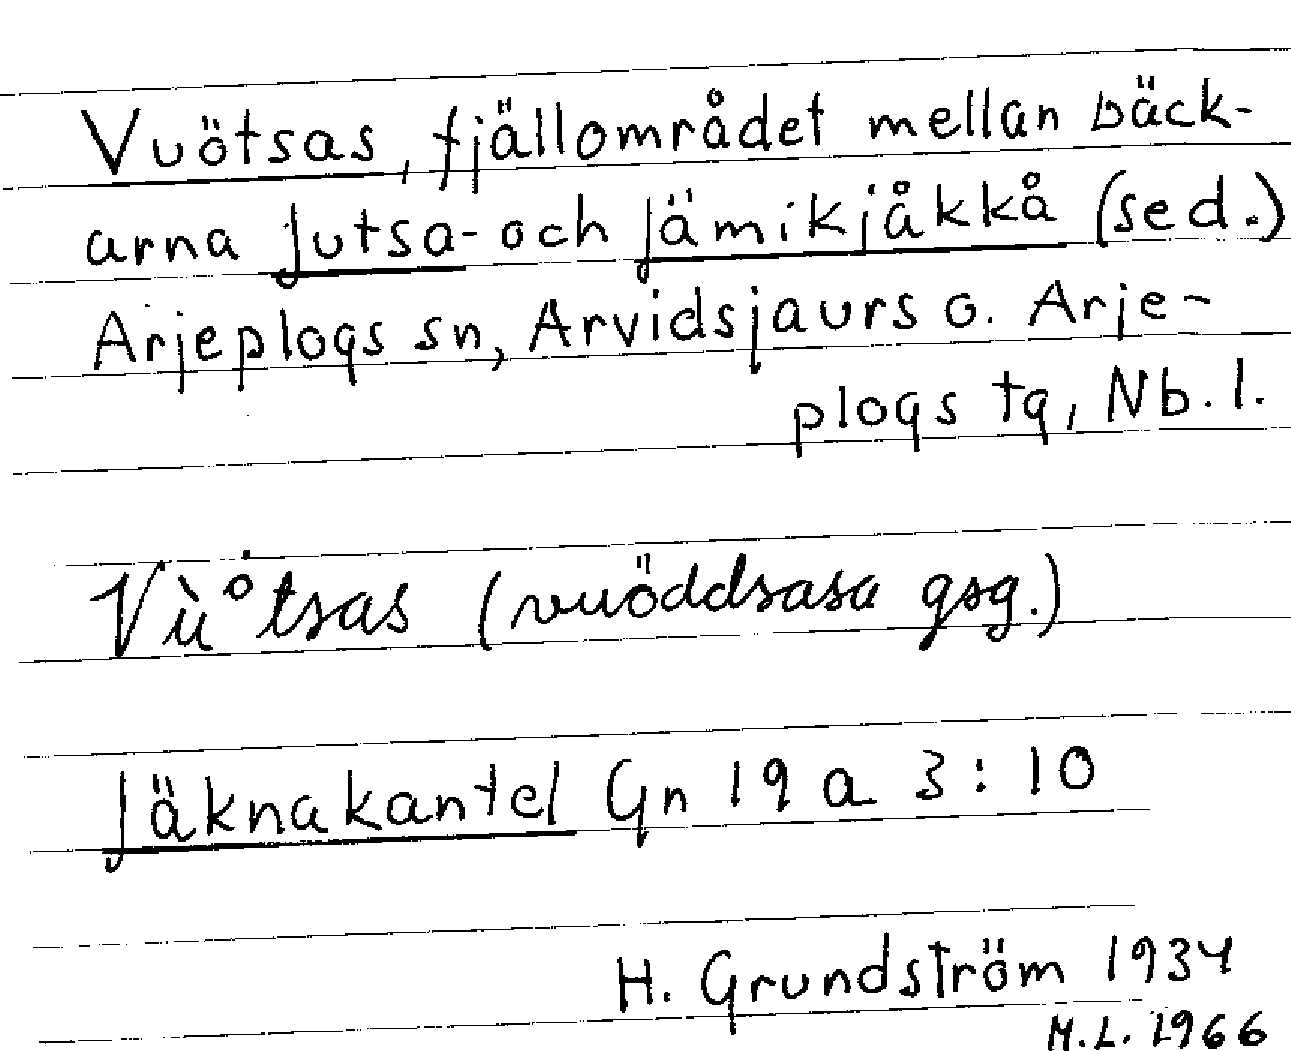 Vuötsas, fjällområdet mellan bäck-
arna Jutsa- och Jämikjåkkå (sed.)
Arjeplogs sn, Arvidsjaurs o. Arje-
plogs tg, Nb. l.
Vù˚tsas (vuöddsasa gsg.)
Jäknakantel Gn 19 a 3:10
H. Grundström 1934
M.L. 1966